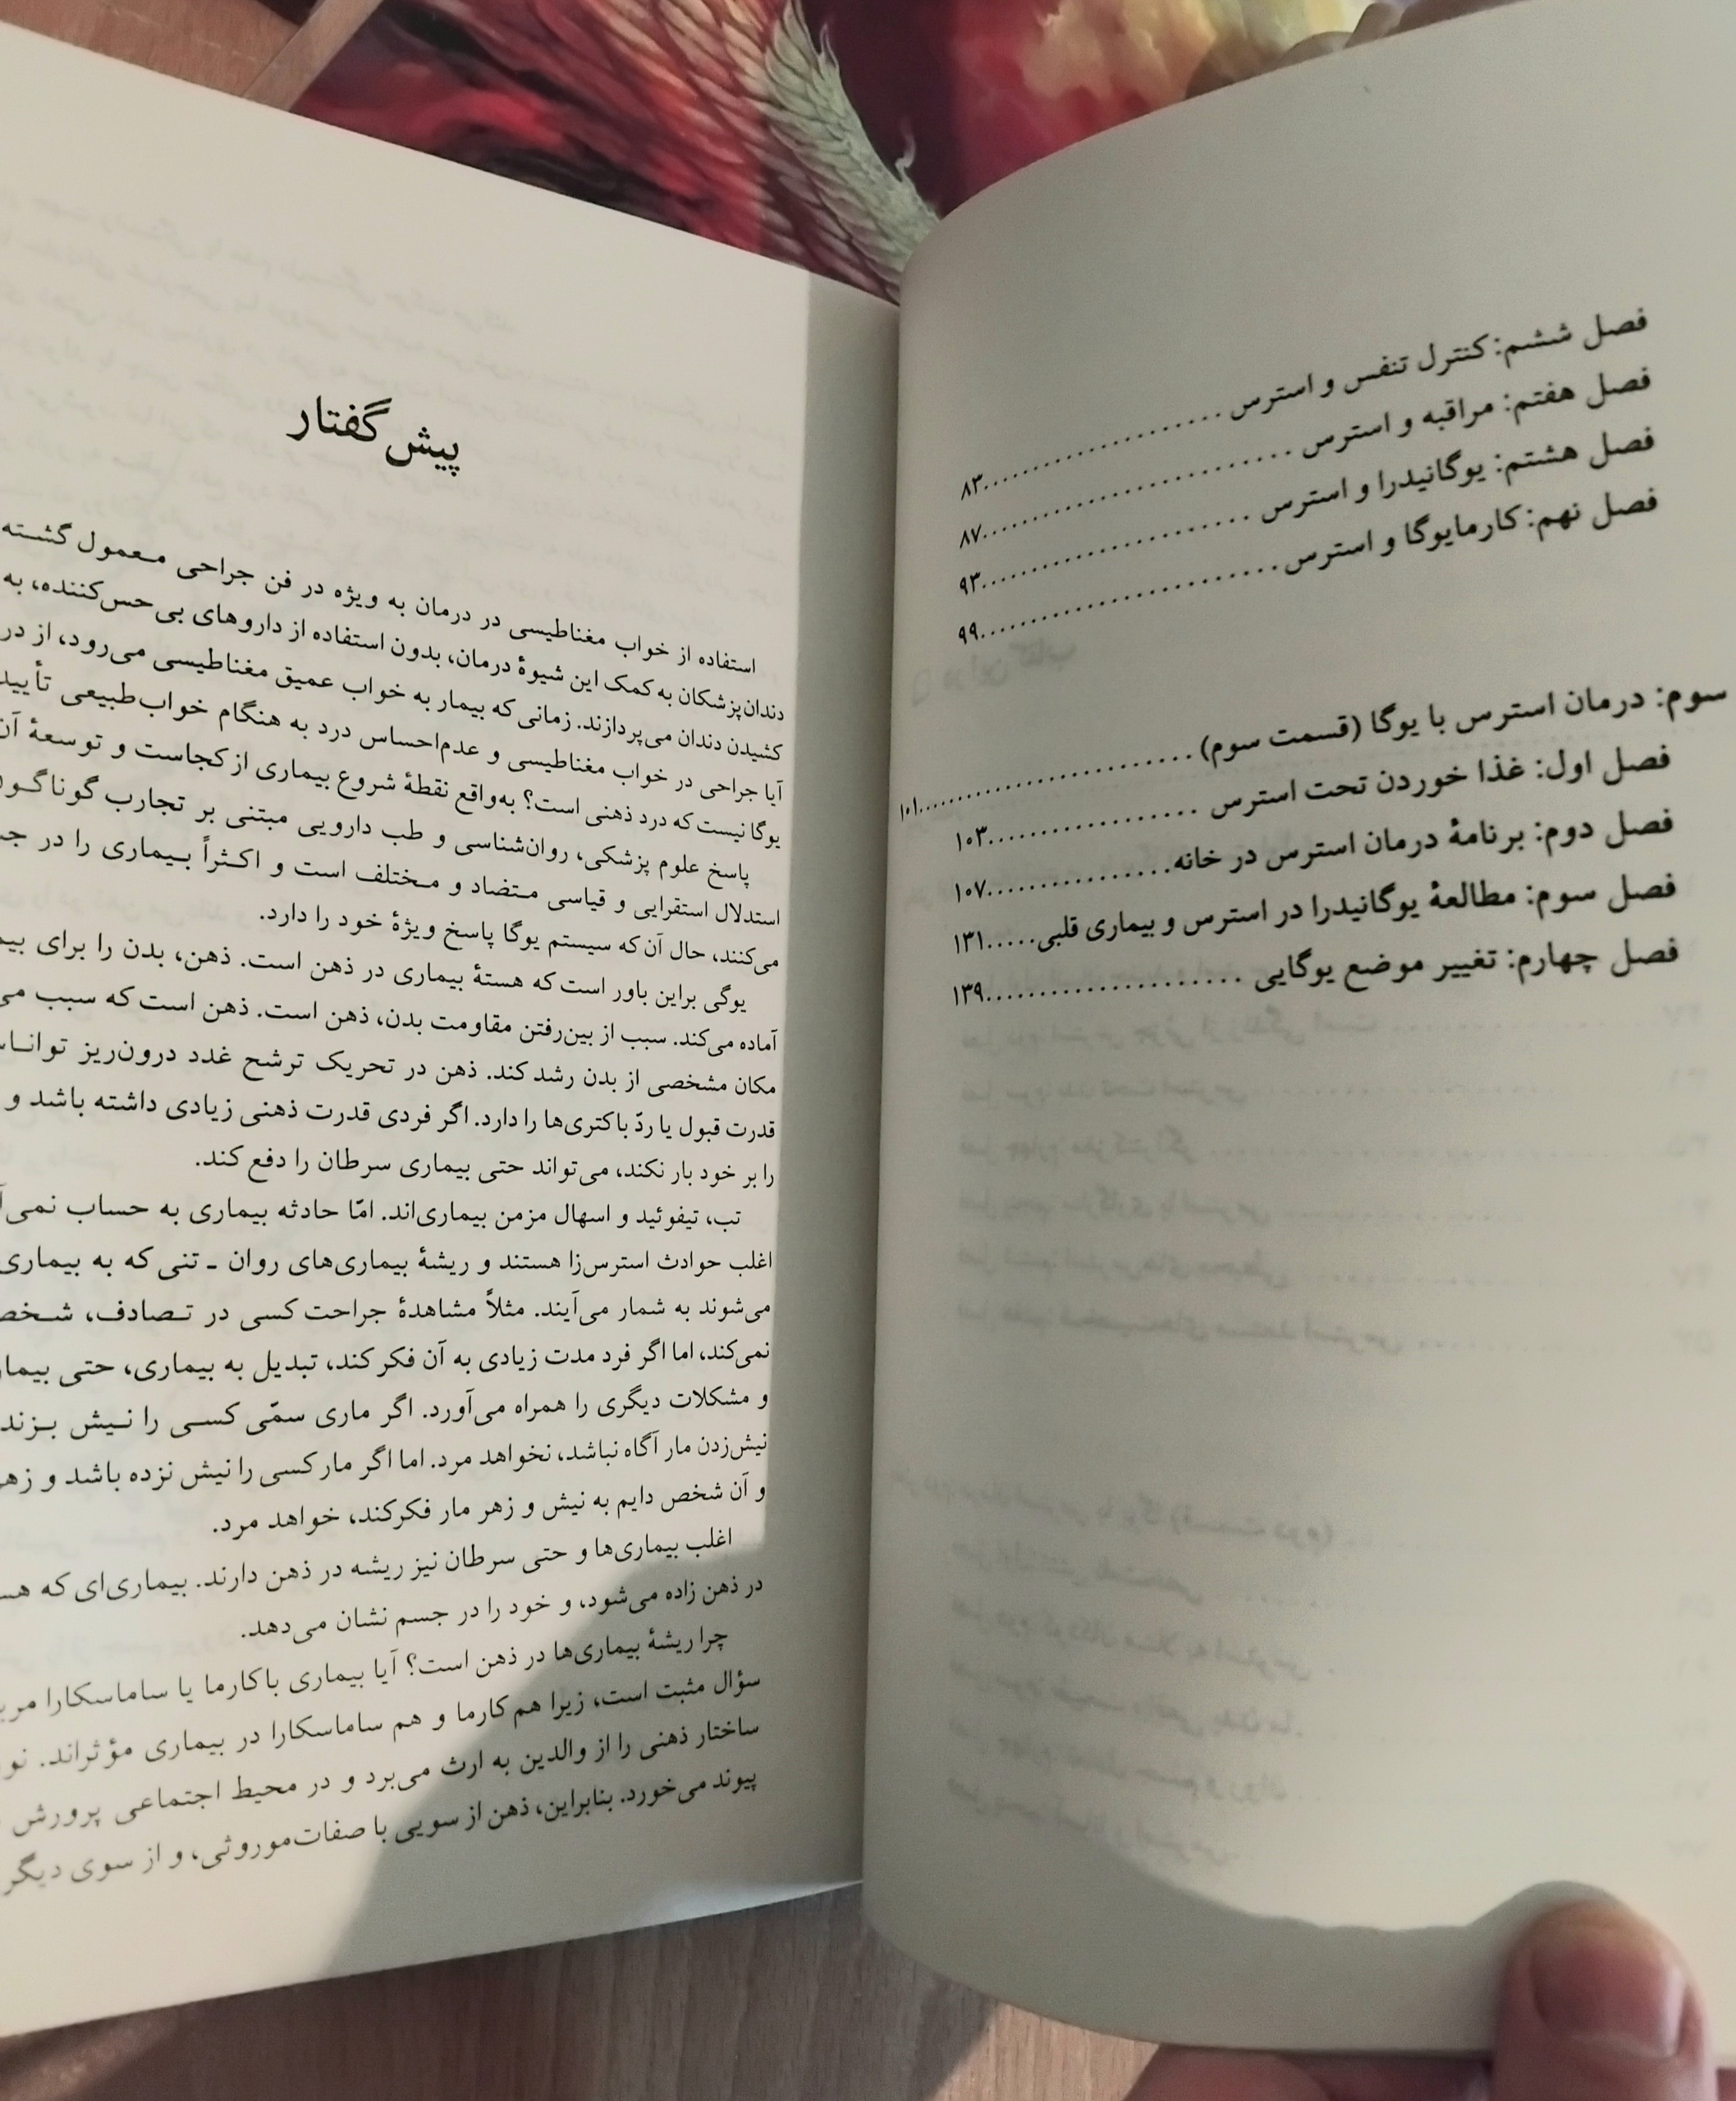 فصل ششم: کنترل تنفس و استرس ..........................۸۳
فصل هفتم: مراقبه و استرس ..............................۸۷
فصل هشتم: یوگانیدرا و استرس ..........................۹۳
فصل نهم: کارمایوگا و استرس ............................۹۹
سوم: درمان استرس با یوگا (قسمت سوم) ..........................۱۰۱
فصل اول: غذا خوردن تحت استرس ......................۱۰۳
فصل دوم: برنامهٔ درمان استرس در خانه..................۱۰۷
فصل سوم: مطالعهٔ یوگانیدرا در استرس و بیماری قلبی.....۱۳۱
فصل چهارم: تغییر موضع یوگایی ........................۱۳۹
پیش‌گفتار
استفاده از خواب مغناطیسی در درمان به ویژه در فن جراحی معمول گشته
دندان‌پزشکان به کمک این شیوهٔ درمان، بدون استفاده از داروهای بی‌حس‌کننده، به
کشیدن دندان می‌پردازند. زمانی که بیمار به خواب عمیق مغناطیسی می‌رود، از در
آیا جراحی در خواب مغناطیسی و عدم‌احساس درد به هنگام خواب‌طبیعی تأیید
یوگا نیست که درد ذهنی است؟ به‌واقع نقطهٔ شروع بیماری از کجاست و توسعهٔ آن
پاسخ علوم پزشکی، روان‌شناسی و طب دارویی مبتنی بر تجارب گوناگون
استدلال استقرایی و قیاسی متضاد و مختلف است و اکثراً بیماری را در
می‌کنند، حال آن‌که سیستم یوگا پاسخ ویژهٔ خود را دارد.
یوگی براین باور است که هستهٔ بیماری در ذهن است. ذهن، بدن را برای
آماده می‌کند. سبب از بین‌رفتن مقاومت بدن، ذهن است. ذهن است که سبب می
مکان مشخصی از بدن رشد کند. ذهن در تحریک ترشح غدد درون‌ریز
قدرت قبول یا ردّ باکتری‌ها را دارد. اگر فردی قدرت ذهنی زیادی داشته باشد و
را بر خود بار نکند، می‌تواند حتی بیماری سرطان را دفع کند.
تب، تیفوئید و اسهال مزمن بیماری‌اند. امّا حادثه بیماری به حساب
اغلب حوادث استرس‌زا هستند و ریشهٔ بیماری‌های روان ـ تنی که به بیماری
می‌شوند به شمار می‌آیند. مثلاً مشاهدهٔ جراحت کسی در تصادف، شخص
نمی‌کند، اما اگر فرد مدت زیادی به آن فکر کند، تبدیل به بیماری، حتی
و مشکلات دیگری را همراه می‌آورد. اگر ماری سمّی کسی را نیش بزند
نیش‌زدن مار آگاه نباشد، نخواهد مرد. اما اگر مار کسی را نیش نزده باشد و زهر
و آن شخص دایم به نیش و زهر مار فکر کند، خواهد مرد.
اغلب بیماری‌ها و حتی سرطان نیز ریشه در ذهن دارند. بیماری‌ای که
در ذهن زاده می‌شود، و خود را در جسم نشان می‌دهد.
چرا ریشهٔ بیماری‌ها در ذهن است؟ آیا بیماری با کارما یا ساماسکارا
سؤال مثبت است، زیرا هم کارما و هم ساماسکارا در بیماری مؤثراند.
ساختار ذهنی را از والدین به ارث می‌برد و در محیط اجتماعی پرورش
پیوند می‌خورد. بنابراین، ذهن از سویی با صفات‌موروثی، و از سوی دیگر